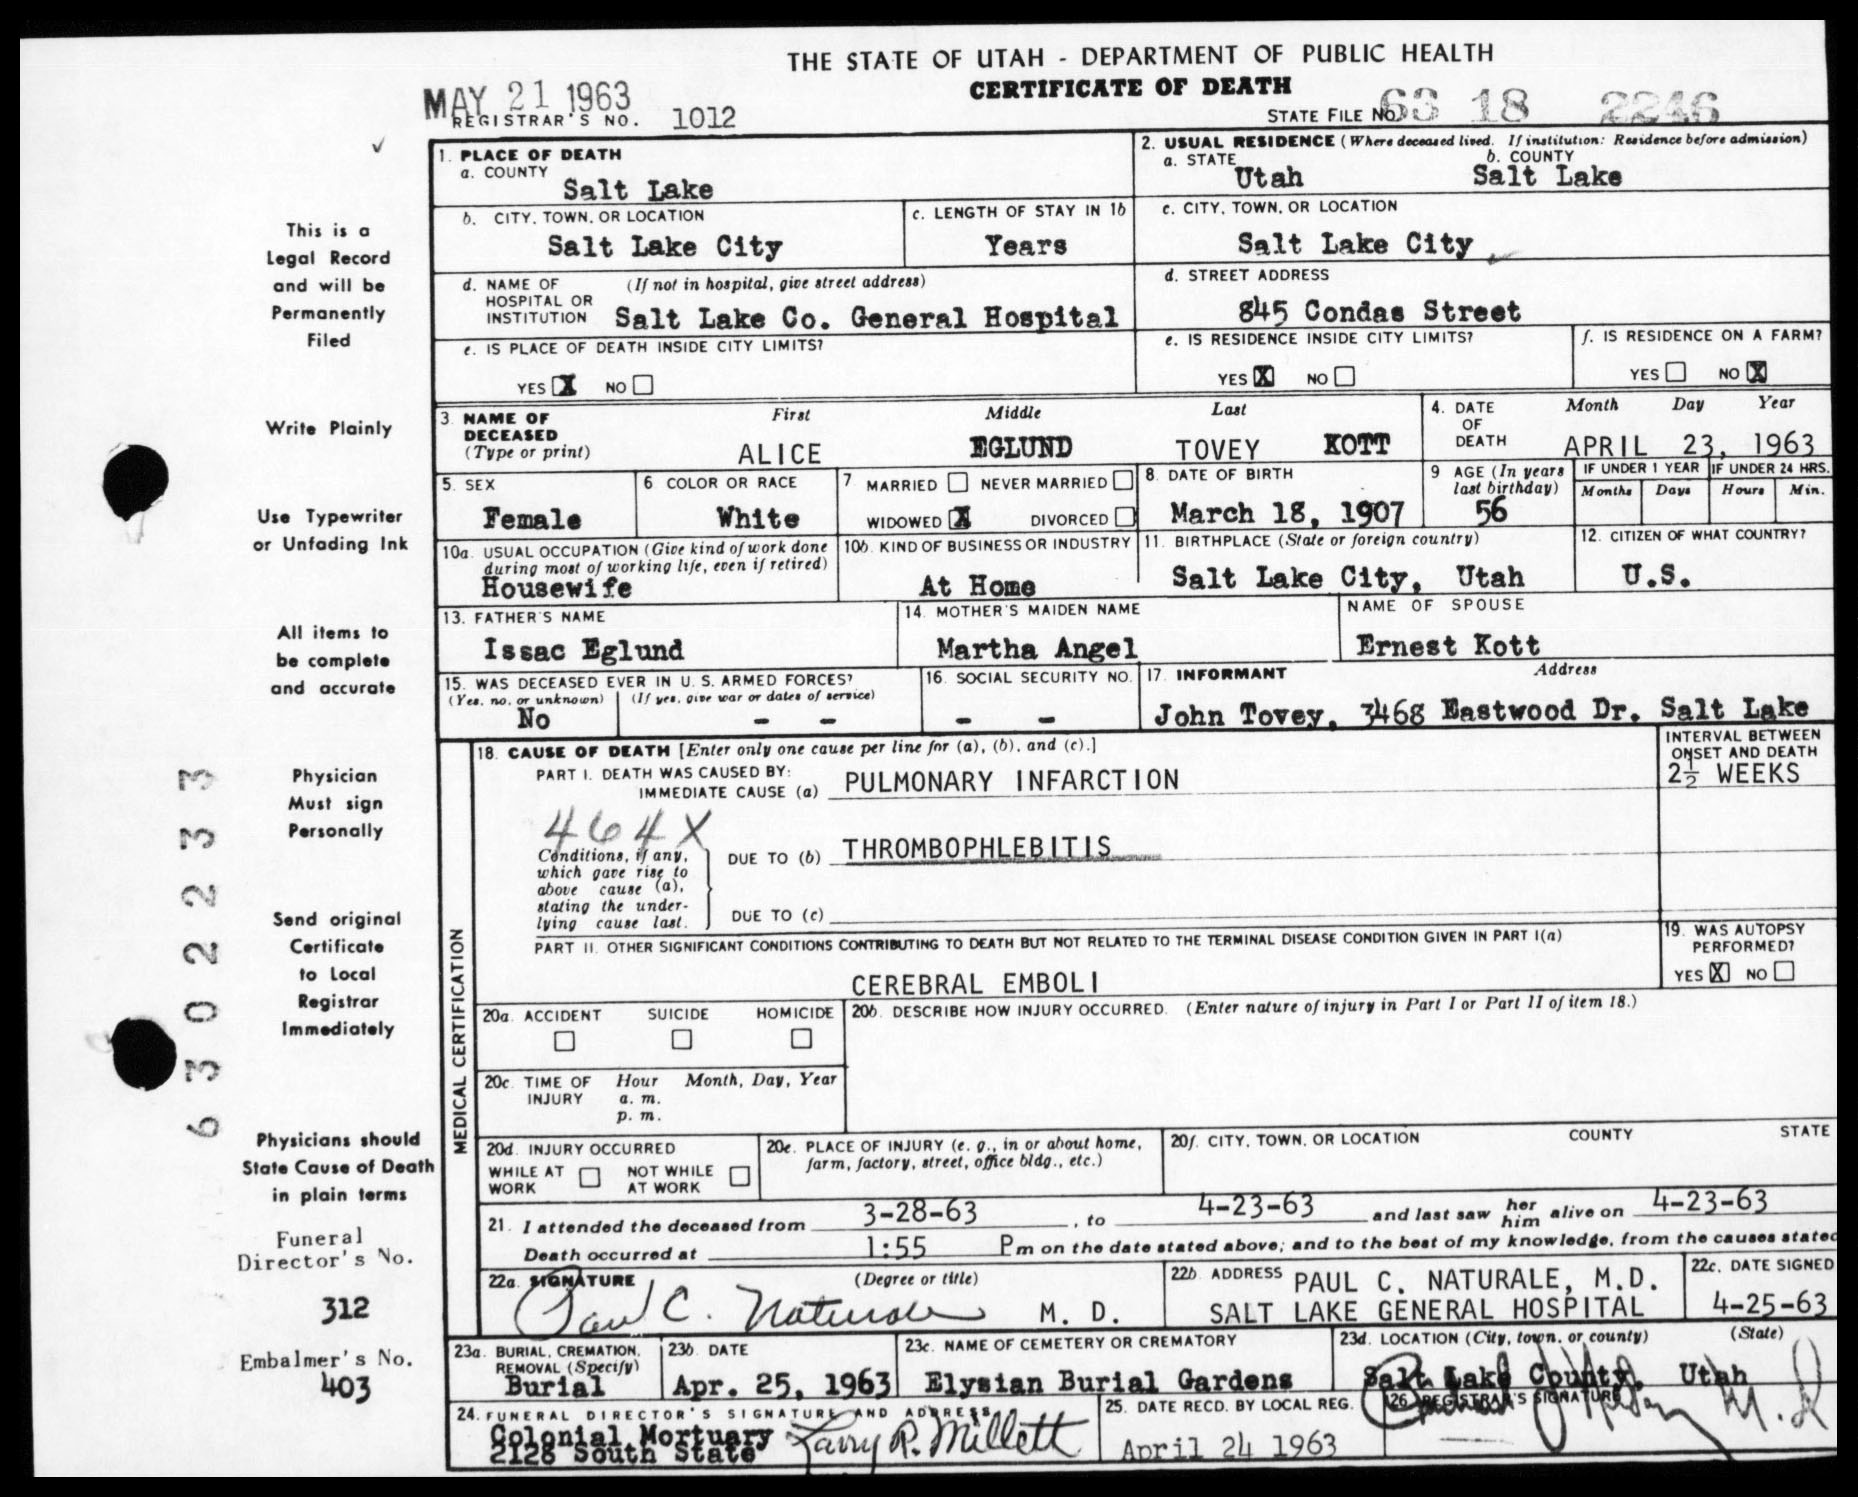 THE STATE OF UTAH - DEPARTMENT OF PUBLIC HEALTH
CERTIFICATE OF DEATH
MAY 21 1963
REGISTRAR'S NO. 1012
STATE FILE NO. 63 18 2246
1. PLACE OF DEATH
a. COUNTY
Salt Lake
2. USUAL RESIDENCE (Where deceased lived. If institution: Residence before admission)
a. STATE
Utah
b. COUNTY
Salt Lake
b. CITY, TOWN, OR LOCATION
Salt Lake City
c. LENGTH OF STAY IN 1b
Years
c. CITY, TOWN, OR LOCATION
Salt Lake City
d. NAME OF HOSPITAL OR INSTITUTION
(If not in hospital, give street address)
Salt Lake Co. General Hospital
d. STREET ADDRESS
845 Condas Street
e. IS PLACE OF DEATH INSIDE CITY LIMITS?
YES X NO
e. IS RESIDENCE INSIDE CITY LIMITS?
YES X NO
f. IS RESIDENCE ON A FARM?
YES NO X
3. NAME OF DECEASED
(Type or print)
First Middle Last
ALICE EGLUND TOVEY KOTT
4. DATE OF DEATH
Month Day Year
APRIL 23, 1963
5. SEX
Female
6 COLOR OR RACE
White
7 MARRIED NEVER MARRIED
WIDOWED X DIVORCED
8. DATE OF BIRTH
March 18, 1907
9 AGE (In years last birthday)
56
IF UNDER 1 YEAR
Months Days
IF UNDER 24 HRS.
Hours Min.
10a. USUAL OCCUPATION (Give kind of work done during most of working life, even if retired)
Housewife
10b. KIND OF BUSINESS OR INDUSTRY
At Home
11. BIRTHPLACE (State or foreign country)
Salt Lake City, Utah
12. CITIZEN OF WHAT COUNTRY?
U.S.
13. FATHER'S NAME
Issac Eglund
14. MOTHER'S MAIDEN NAME
Martha Angel
NAME OF SPOUSE
Ernest Kott
15. WAS DECEASED EVER IN U. S. ARMED FORCES?
(Yes, no, or unknown) (If yes, give war or dates of service)
No - -
16. SOCIAL SECURITY NO.
- -
17. INFORMANT Address
John Tovey, 3468 Eastwood Dr. Salt Lake
MEDICAL CERTIFICATION
18. CAUSE OF DEATH [Enter only one cause per line for (a), (b), and (c).]
INTERVAL BETWEEN ONSET AND DEATH
PART I. DEATH WAS CAUSED BY:
IMMEDIATE CAUSE (a) PULMONARY INFARCTION
2½ WEEKS
464X
Conditions, if any, which gave rise to above cause (a), stating the underlying cause last.
DUE TO (b) THROMBOPHLEBITIS
DUE TO (c)
PART II. OTHER SIGNIFICANT CONDITIONS CONTRIBUTING TO DEATH BUT NOT RELATED TO THE TERMINAL DISEASE CONDITION GIVEN IN PART I(a)
CEREBRAL EMBOLI
19. WAS AUTOPSY PERFORMED?
YES X NO
20a. ACCIDENT SUICIDE HOMICIDE
20b. DESCRIBE HOW INJURY OCCURRED. (Enter nature of injury in Part I or Part II of item 18.)
20c. TIME OF INJURY
Hour Month, Day, Year
a. m.
p. m.
20d. INJURY OCCURRED
WHILE AT WORK NOT WHILE AT WORK
20e. PLACE OF INJURY (e. g., in or about home, farm, factory, street, office bldg., etc.)
20f. CITY, TOWN, OR LOCATION COUNTY STATE
21. I attended the deceased from 3-28-63, to 4-23-63 and last saw her him alive on 4-23-63
Death occurred at 1:55 Pm on the date stated above; and to the best of my knowledge, from the causes stated
22a. SIGNATURE (Degree or title)
Paul C. Naturale M. D.
22b. ADDRESS PAUL C. NATURALE, M.D.
SALT LAKE GENERAL HOSPITAL
22c. DATE SIGNED
4-25-63
23a. BURIAL, CREMATION, REMOVAL (Specify)
Burial
23b. DATE
Apr. 25, 1963
23c. NAME OF CEMETERY OR CREMATORY
Elysian Burial Gardens
23d. LOCATION (City, town, or county) (State)
Salt Lake County, Utah
24. FUNERAL DIRECTOR'S SIGNATURE AND ADDRESS
Colonial Mortuary
2128 South State
Larry R. Millett
25. DATE RECD. BY LOCAL REG.
April 24 1963
26. REGISTRAR'S SIGNATURE
M.D
This is a
Legal Record
and will be
Permanently
Filed
Write Plainly
Use Typewriter
or Unfading Ink
All items to
be complete
and accurate
Physician
Must sign
Personally
Send original
Certificate
to Local
Registrar
Immediately
Physicians should
State Cause of Death
in plain terms
Funeral
Director's No.
312
Embalmer's No.
403
63022333